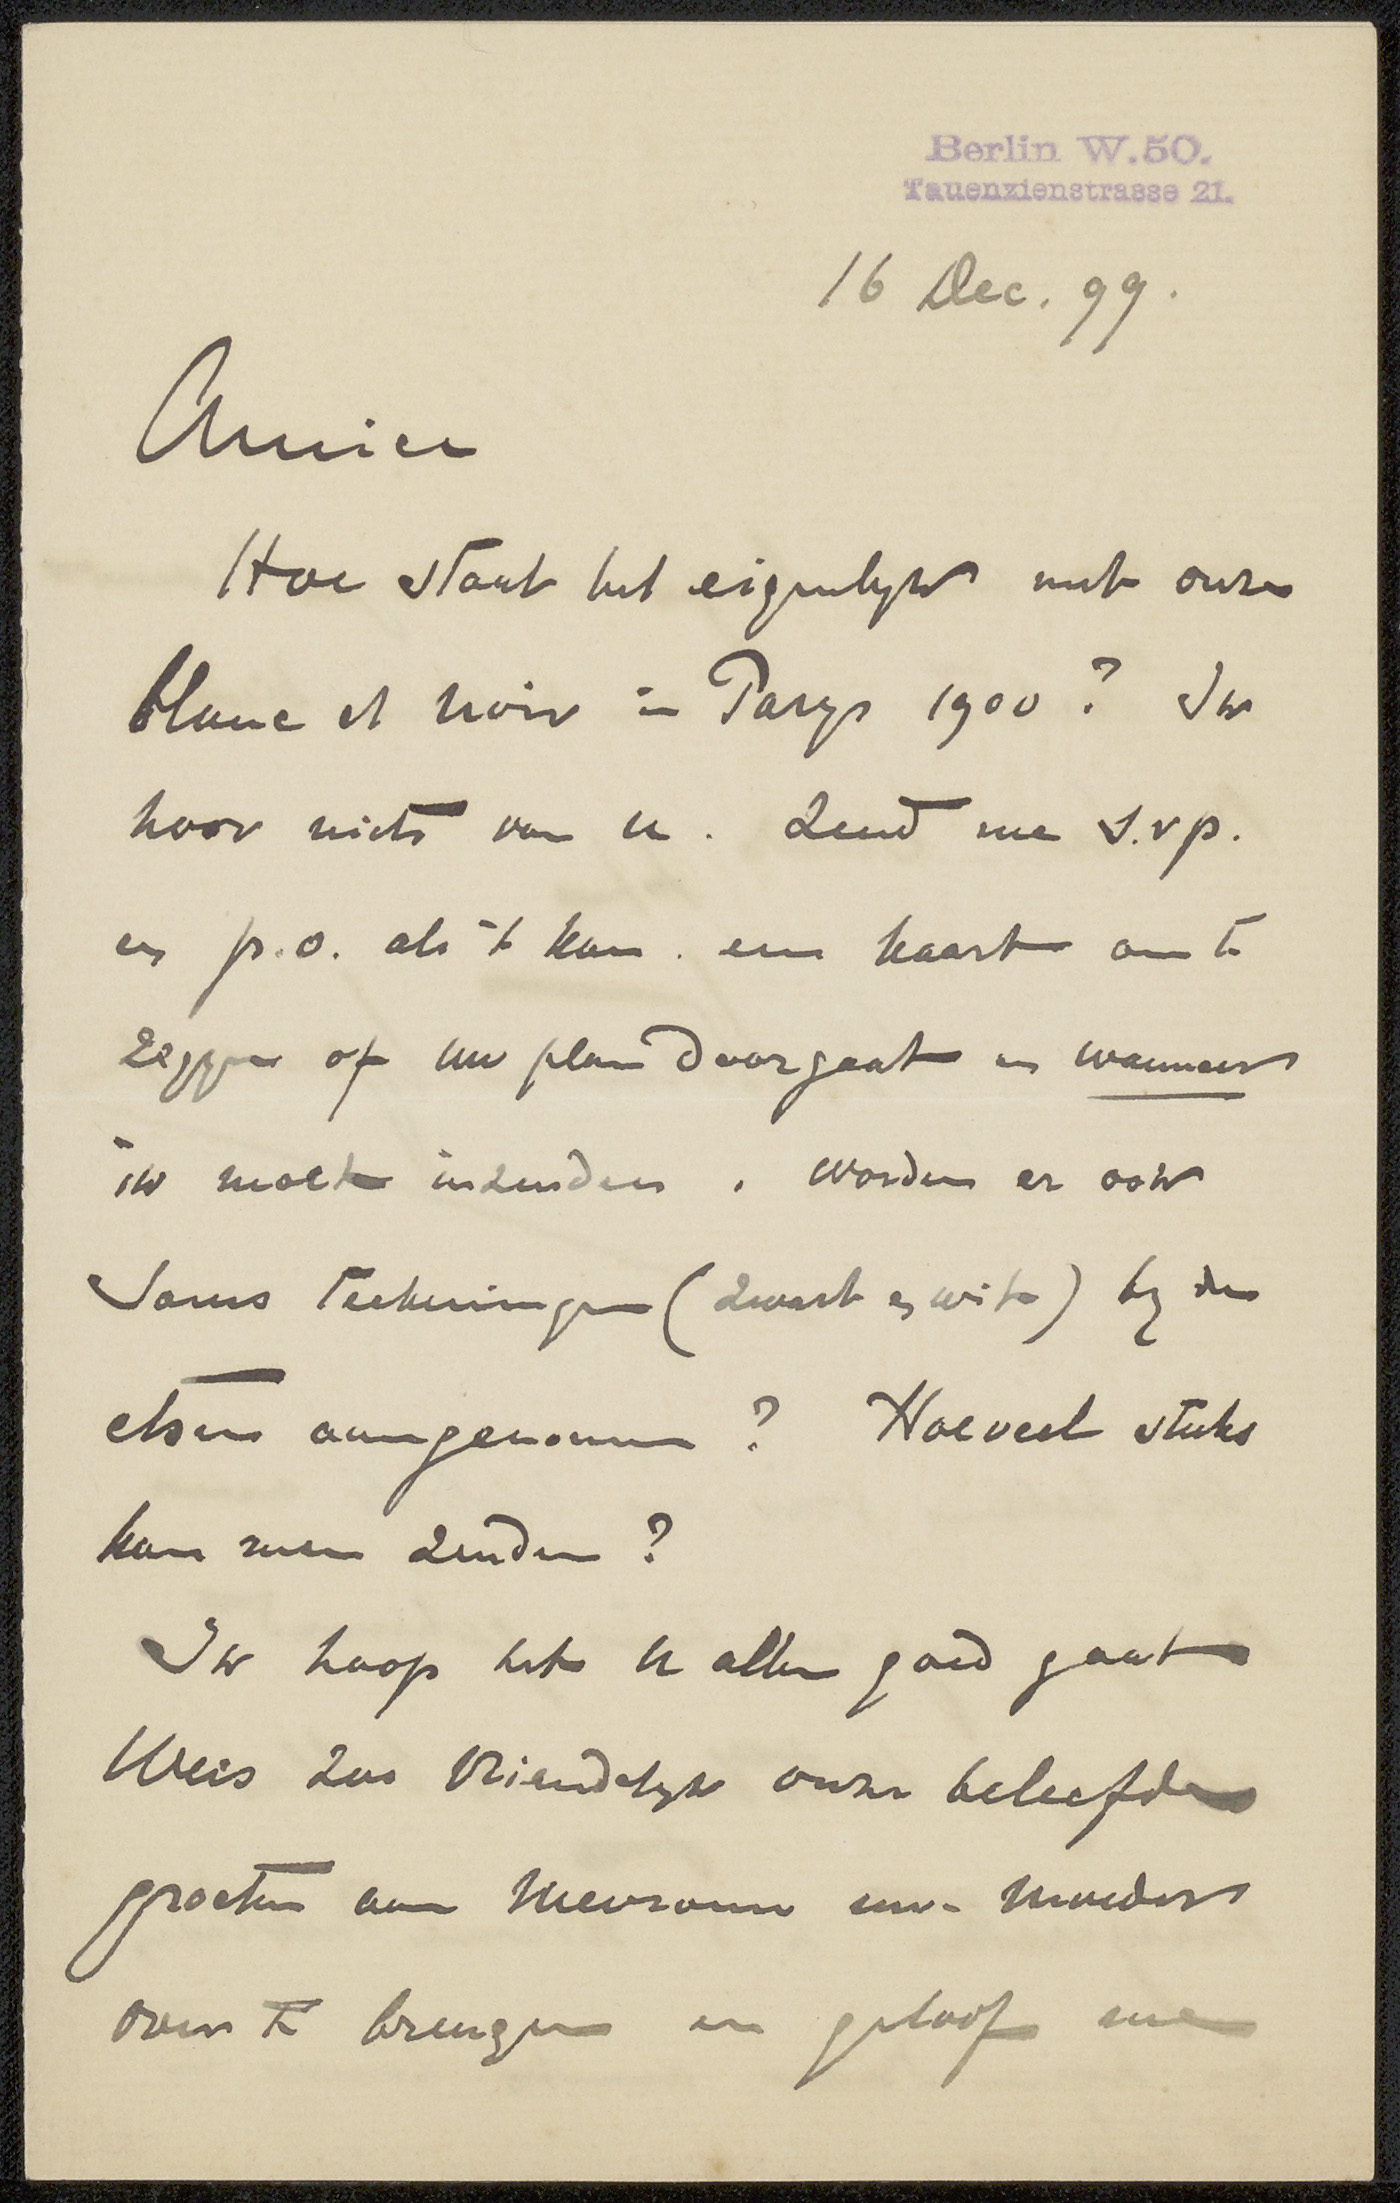 Berlin W.50.
Tauenzienstrasse 21.
16 Dec. 99.
Amice
Hoe staat het eigenlijk met onze
blanc et noir in Parijs 1900? Ik
hoor niets van u. Zend me s.v.p.
en p.o. als 't kan. een kaart om te
zeggen of uw plan doorgaat en wanneer
ik moet inzenden. Worden er ook
soms teekeningen (zwart en wit) bij de
etsen aangenomen? Hoeveel stuks
kan men zenden?
Ik hoop het u allen goed gaat
Wees zoo vriendelijk onze beleefde
groeten aan Mevrouw uw moeder
over te brengen en geloof me